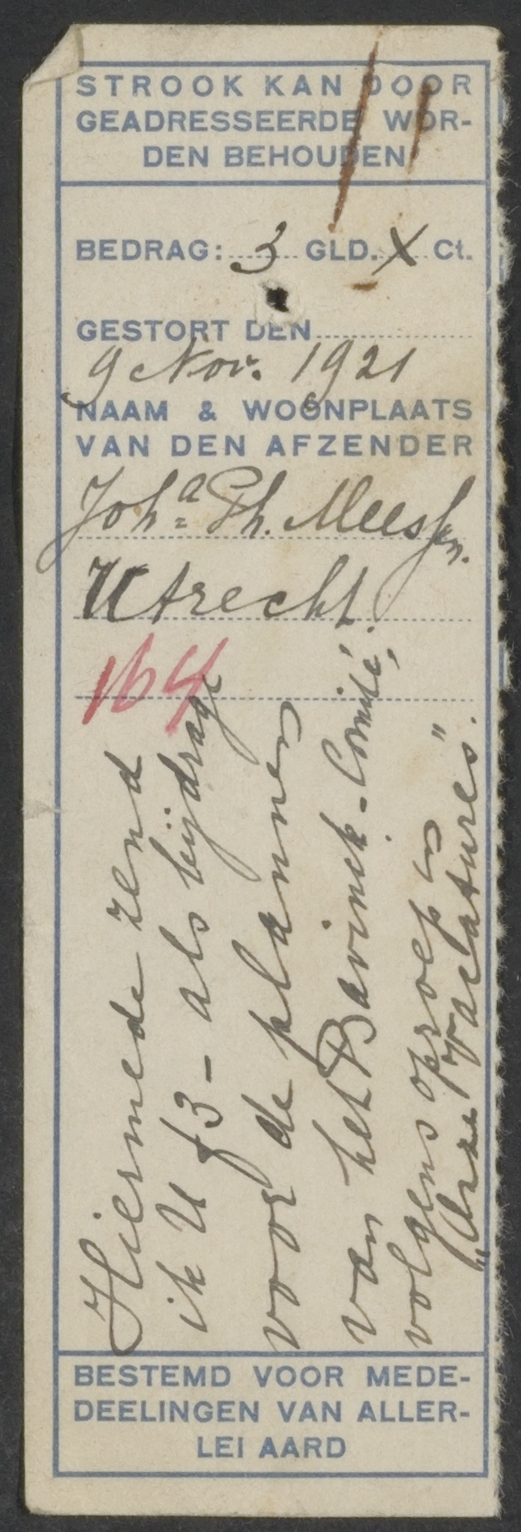 STROOK KAN DOOR
GEADRESSEERDE WOR-
DEN BEHOUDEN
BEDRAG: 3 GLD. X Ct.
GESTORT DEN
9 Nov. 1921
NAAM & WOONPLAATS
VAN DEN AFZENDER
Joha Ph. Mees
Utrecht.
164
Hiermede zend
ik U f 3 - als bijdrage
voor de plannen
van het Bavinck-Comité,
volgens oproep in
„Onze Vacatures".
BESTEMD VOOR MEDE-
DEELINGEN VAN ALLER-
LEI AARD